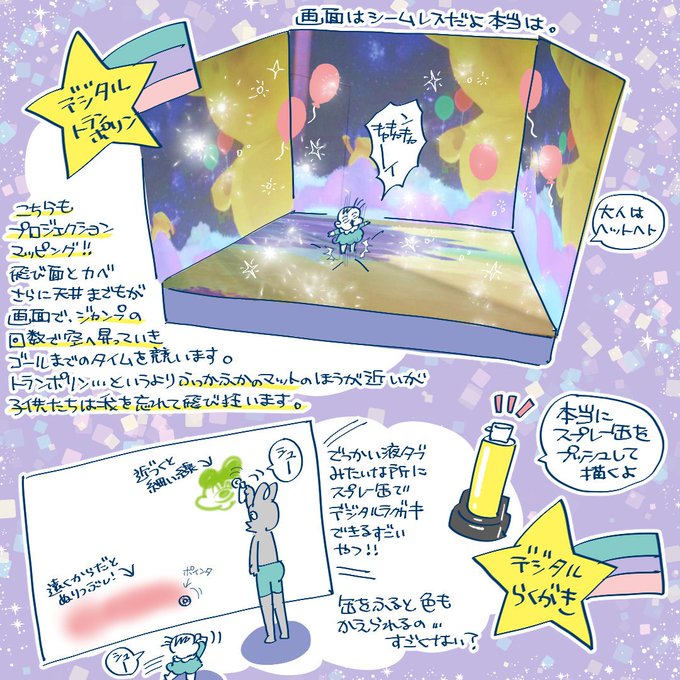 画面はシームレスだよ本当は。
デジタル
トラン
ポリン
キャキャキャ
ーイ
大人は
ヘットヘト
こちらも
プロジェクション
マッピング!!
飛び面とカベ
さらに天井までもが
画面で、ジャンプの
回数で空へ昇っていき
ゴールまでのタイムを競います。
トランポリン…というよりふっかふかのマットのほうが近いが
子供たちは我を忘れて飛び狂います。
本当に
スプレー缶を
プッシュして
描くよ
近づくと
細い線
シュー
でっかい液タブ
みたいな所に
スプレー缶で
デジタルラクガキ
できるすごい
やつ!!
遠くからだと
ぬりつぶし!
ポインタ
シュー
缶をふると色も
かえられるの…
すごくない?
デジタル
らくがき